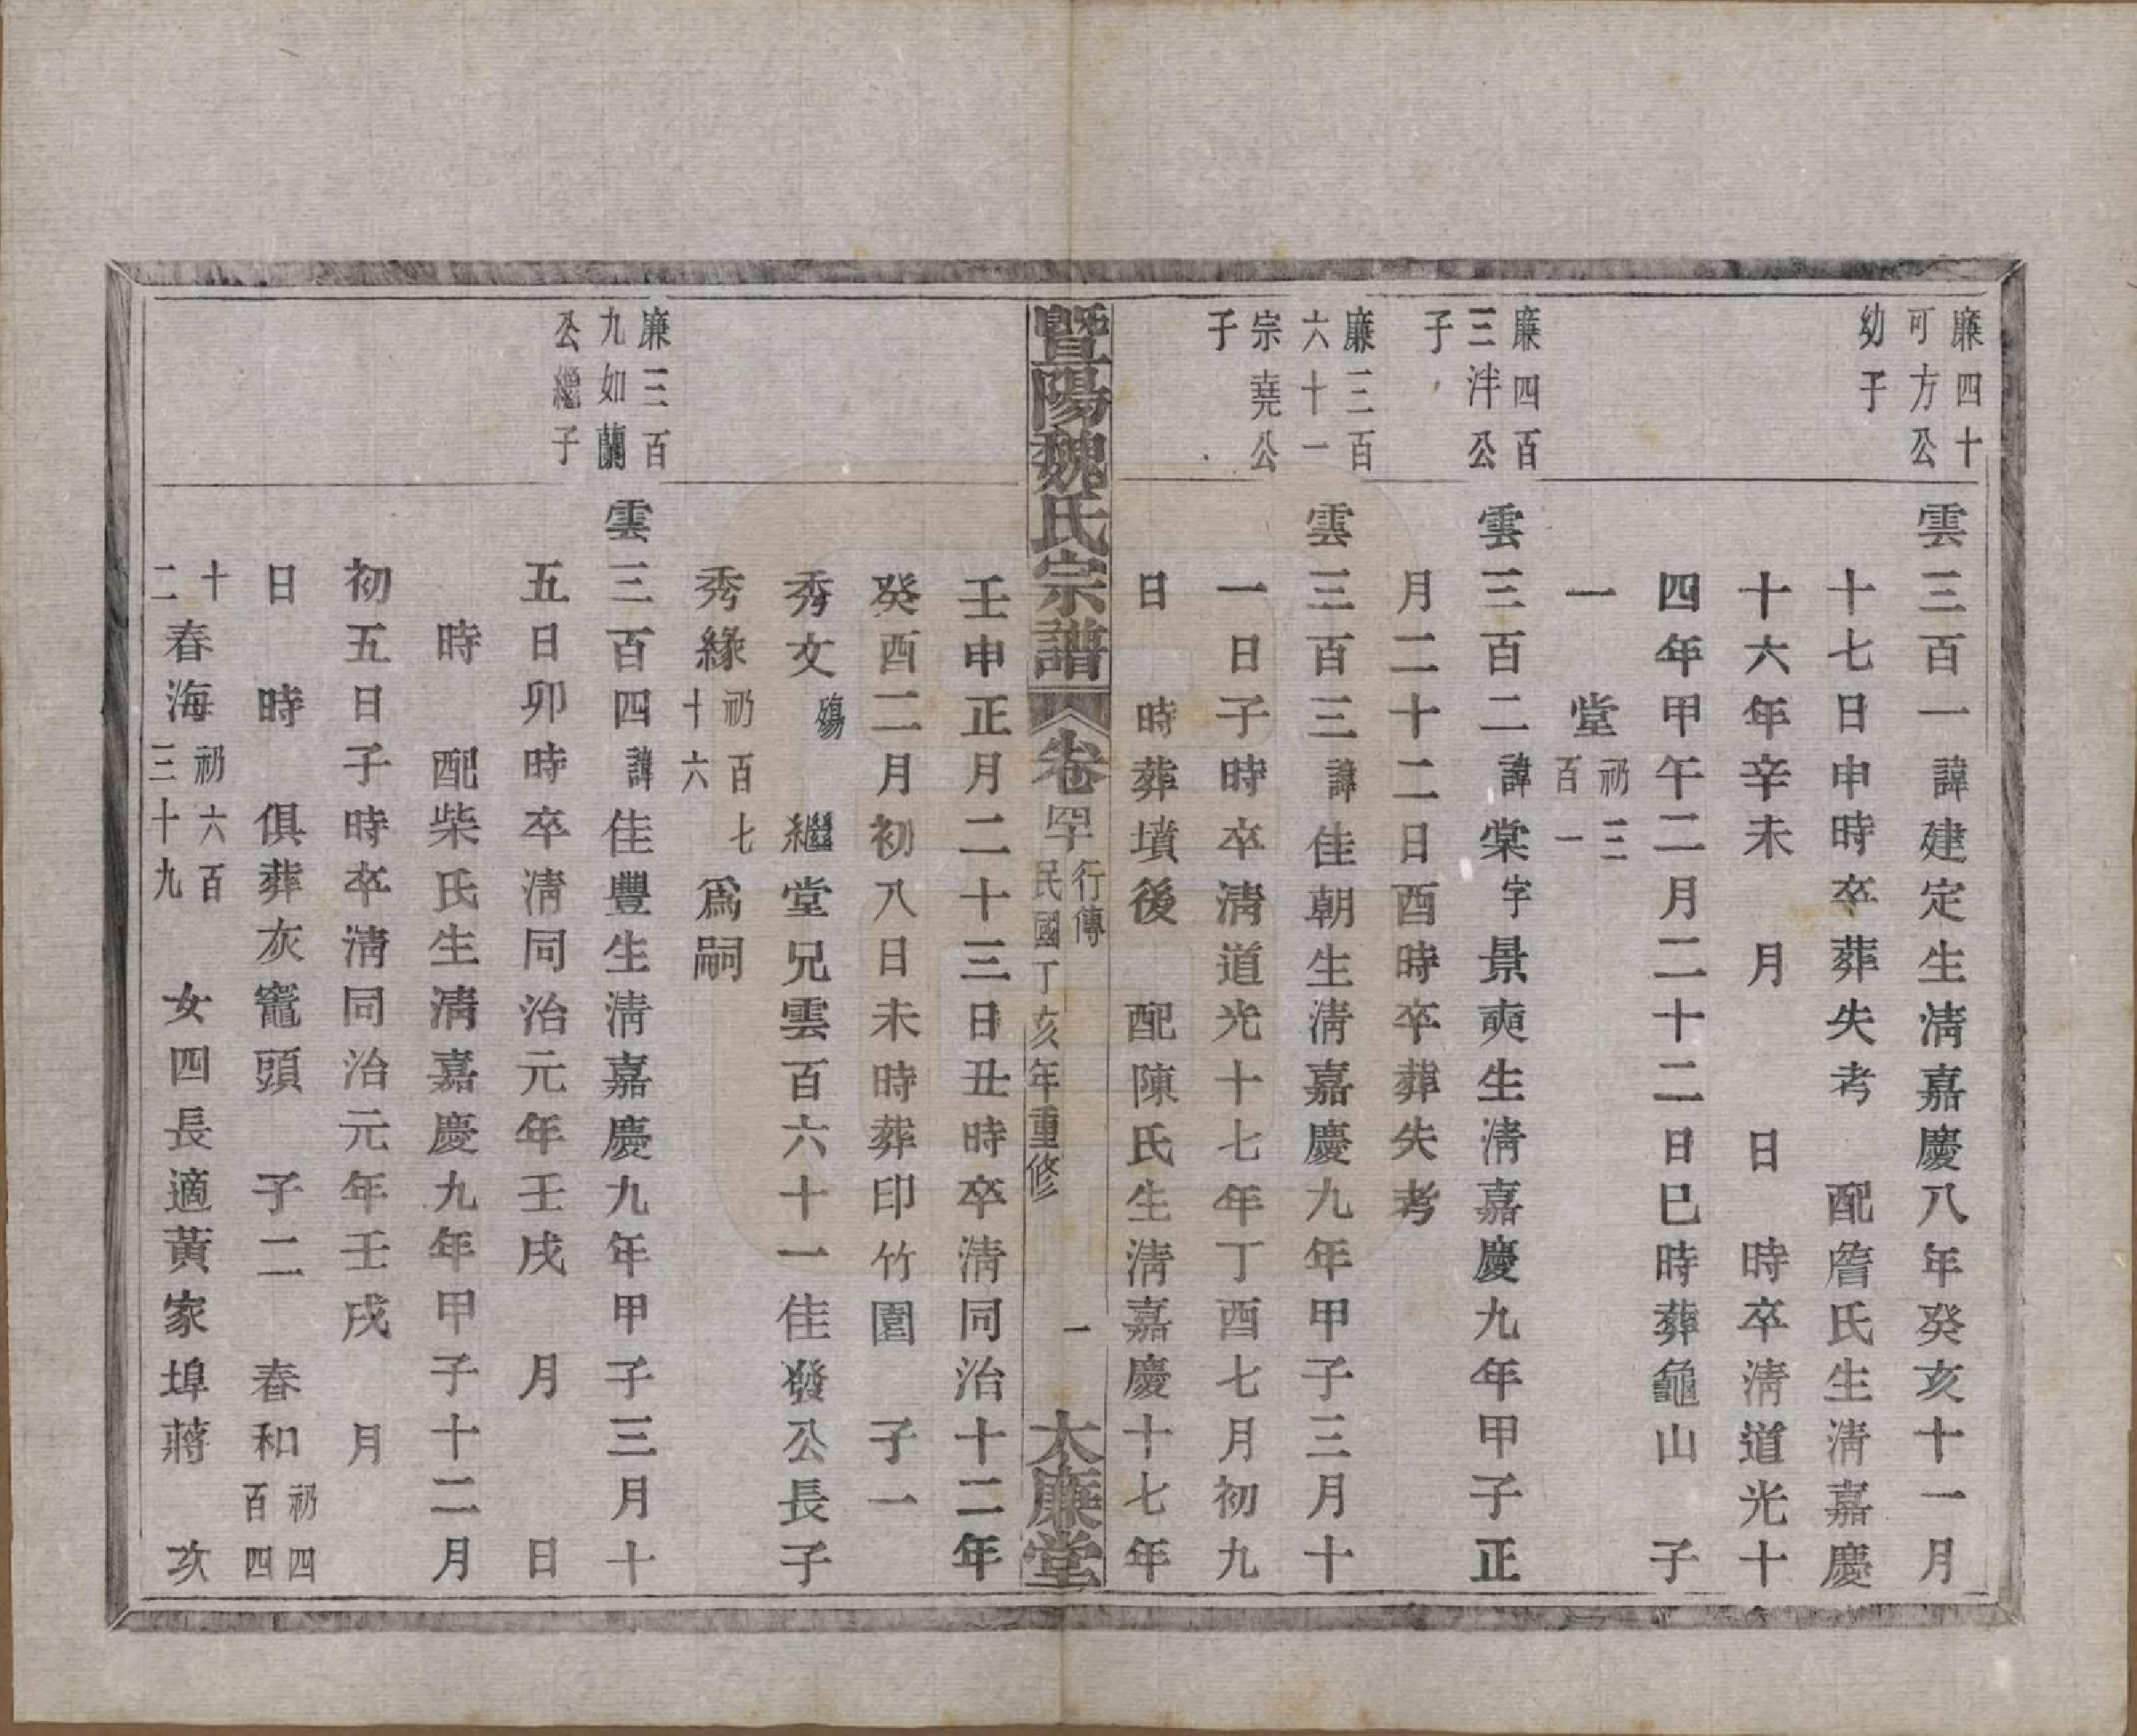 廉四十
可方公
幼子
雲三百一諱建定生淸嘉慶八年癸亥十一月
十七日申時卒葬失考 配詹氏生淸嘉慶
十六年辛未 月 日 時卒淸道光十
四年甲午二月二十二日巳時葬龜山 子
一 堂礽三百一
廉四百
三泮公
子
雲三百二諱棠字景奭生淸嘉慶九年甲子正
月二十二日酉時卒葬失考
廉三百
六十一
宗堯公
子
雲三百三諱佳朝生淸嘉慶九年甲子三月十
一日子時卒淸道光十七年丁酉七月初九
日 時葬墳後 配陳氏生淸嘉慶十七年
暨陽魏氏宗譜 卷四 行傳 民國丁亥年重修 一 太廉堂
壬申正月二十三日丑時卒淸同治十二年
癸酉二月初八日未時葬印竹園 子一
秀文殤 繼堂兄雲百六十一佳發公長子
秀緣礽百七十六 爲嗣
廉三百
九如蘭
公繼子
雲三百四諱佳豐生淸嘉慶九年甲子三月十
五日卯時卒淸同治元年壬戌 月 日
時 配柴氏生淸嘉慶九年甲子十二月
初五日子時卒淸同治元年壬戌 月
日 時 俱葬灰竈頭 子二 春和礽四百四
十二 春海礽六百三十九 女四長適黃家埠蔣 次